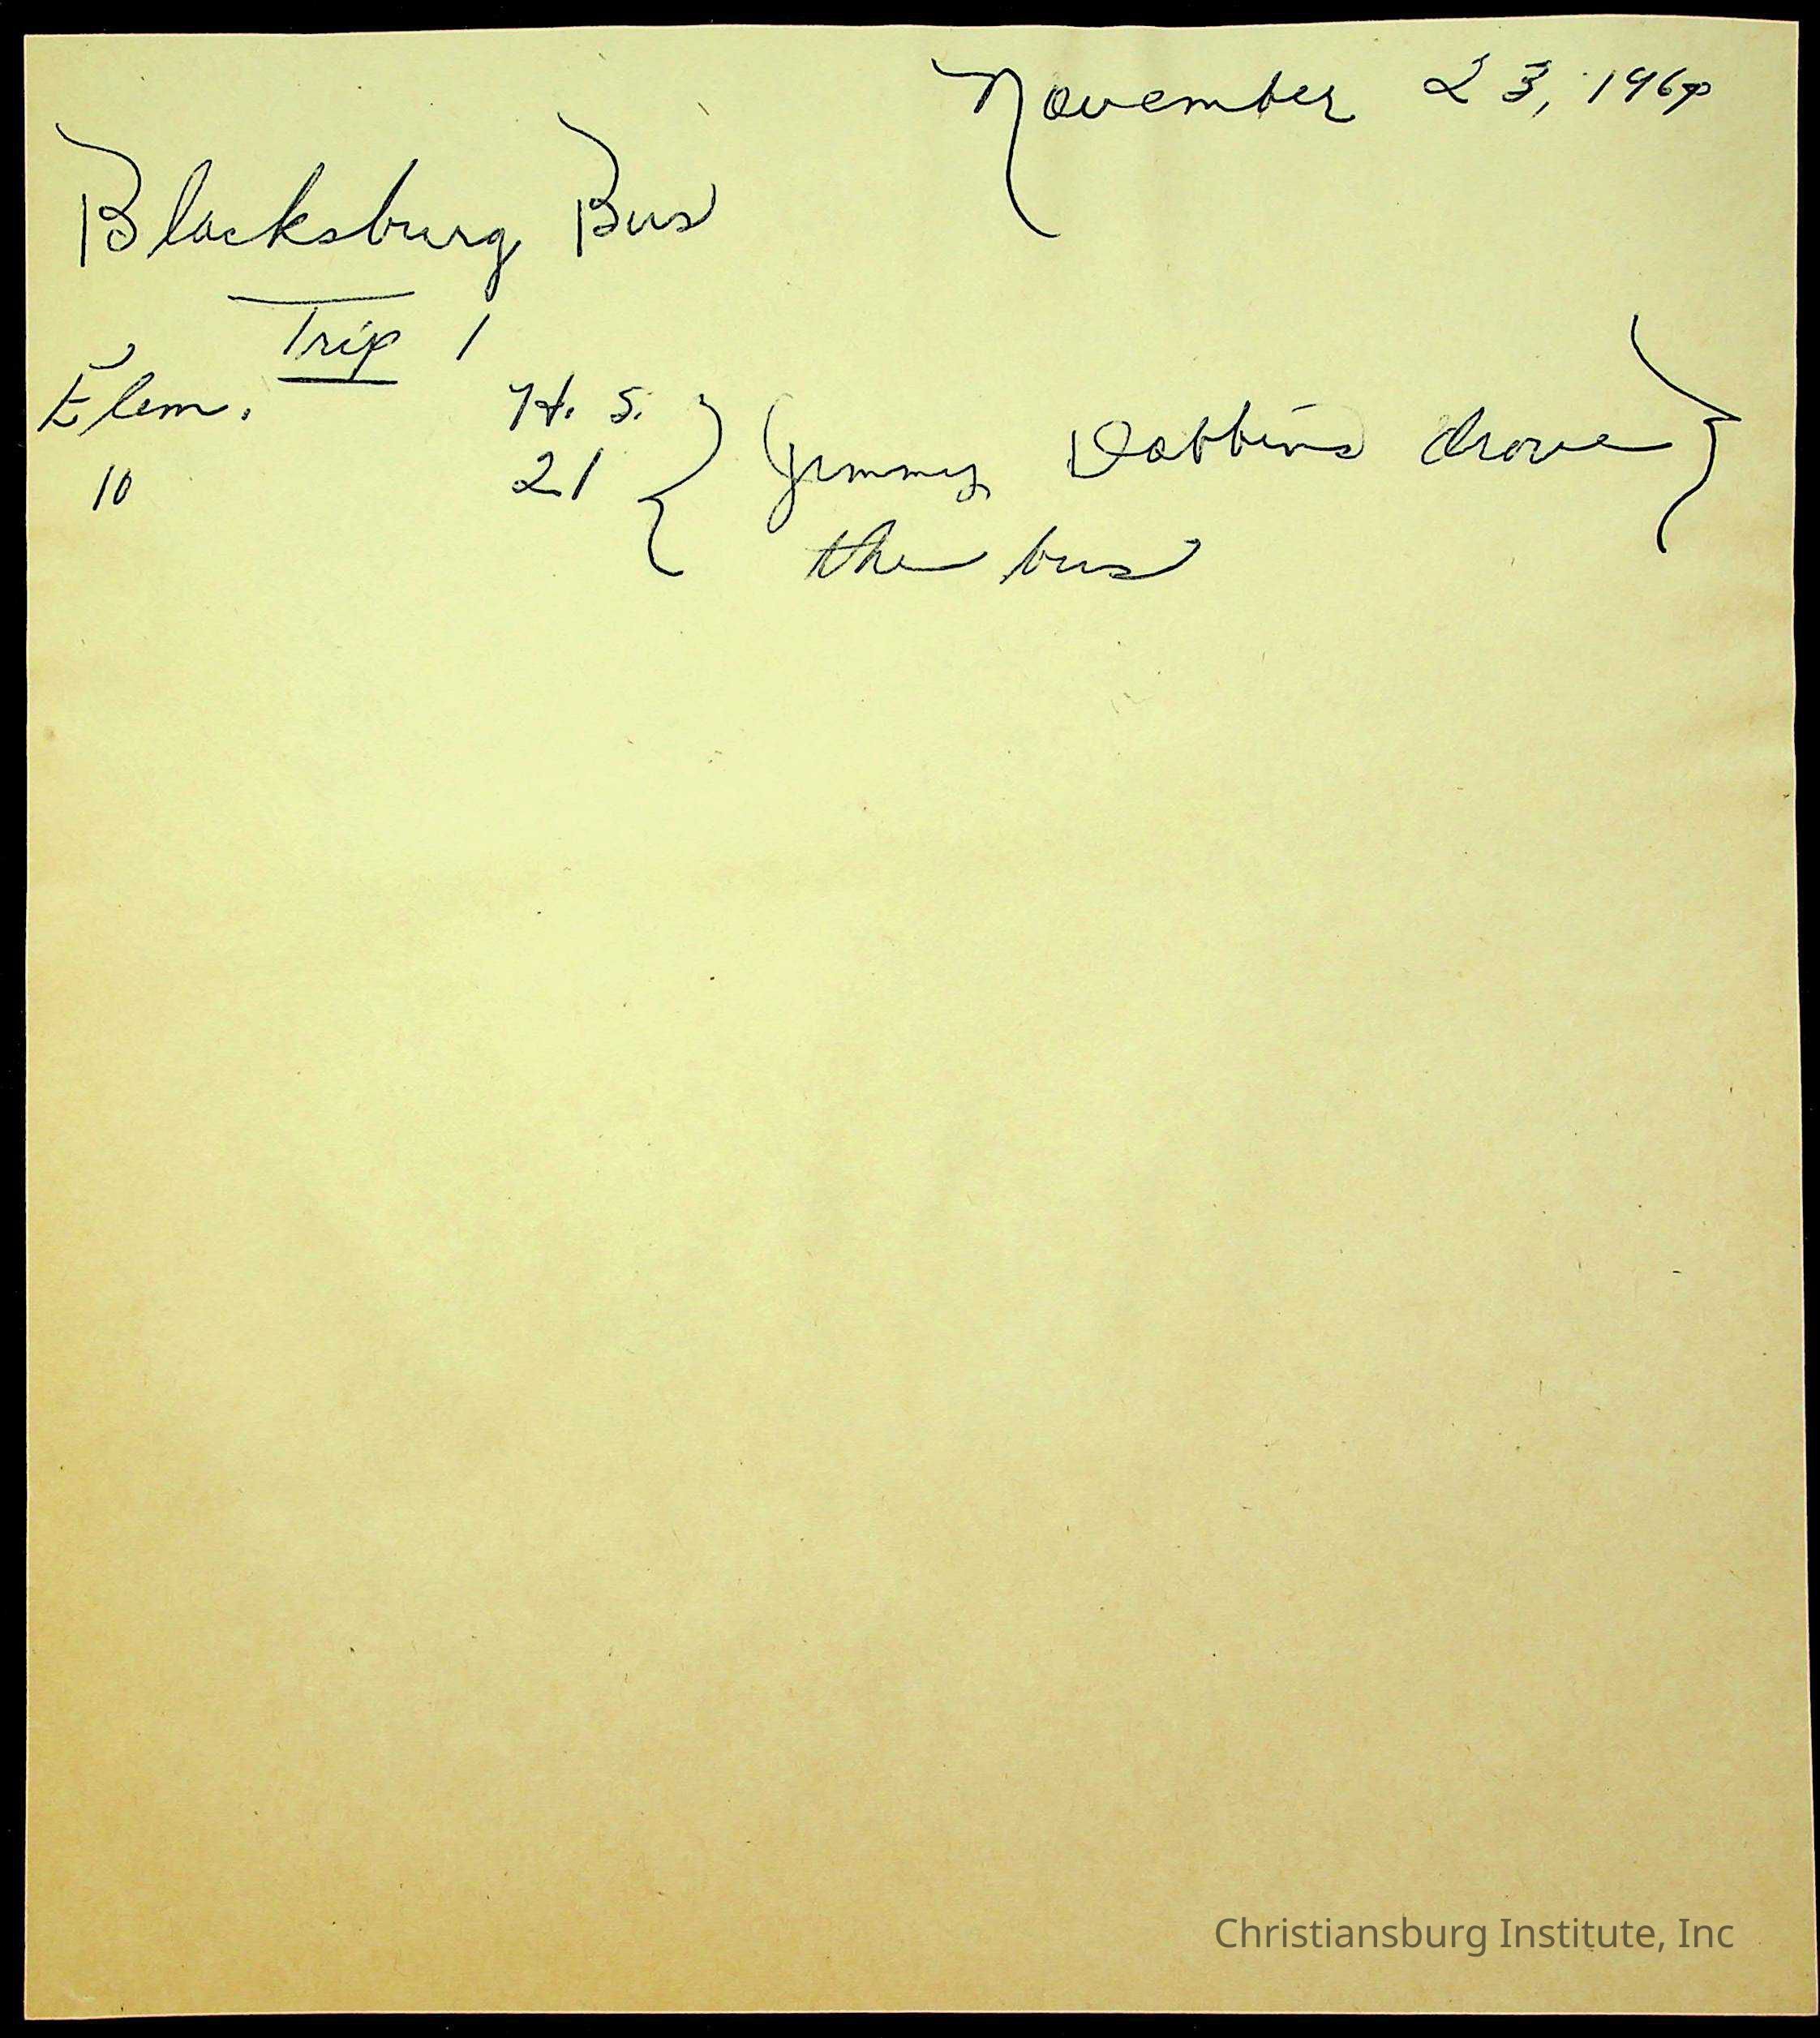 November 23, 1960
Blacksburg Bus
Trip 1
Elem. H. S.
10 21
{ Jimmy Dobbins drove }
the bus
Christiansburg Institute, Inc